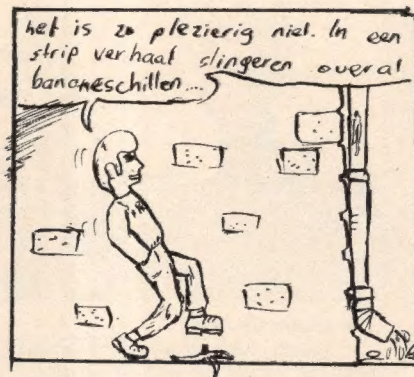 het is zo plezierig niet. In een
strip verhaal slingeren overal
bananeschillen...